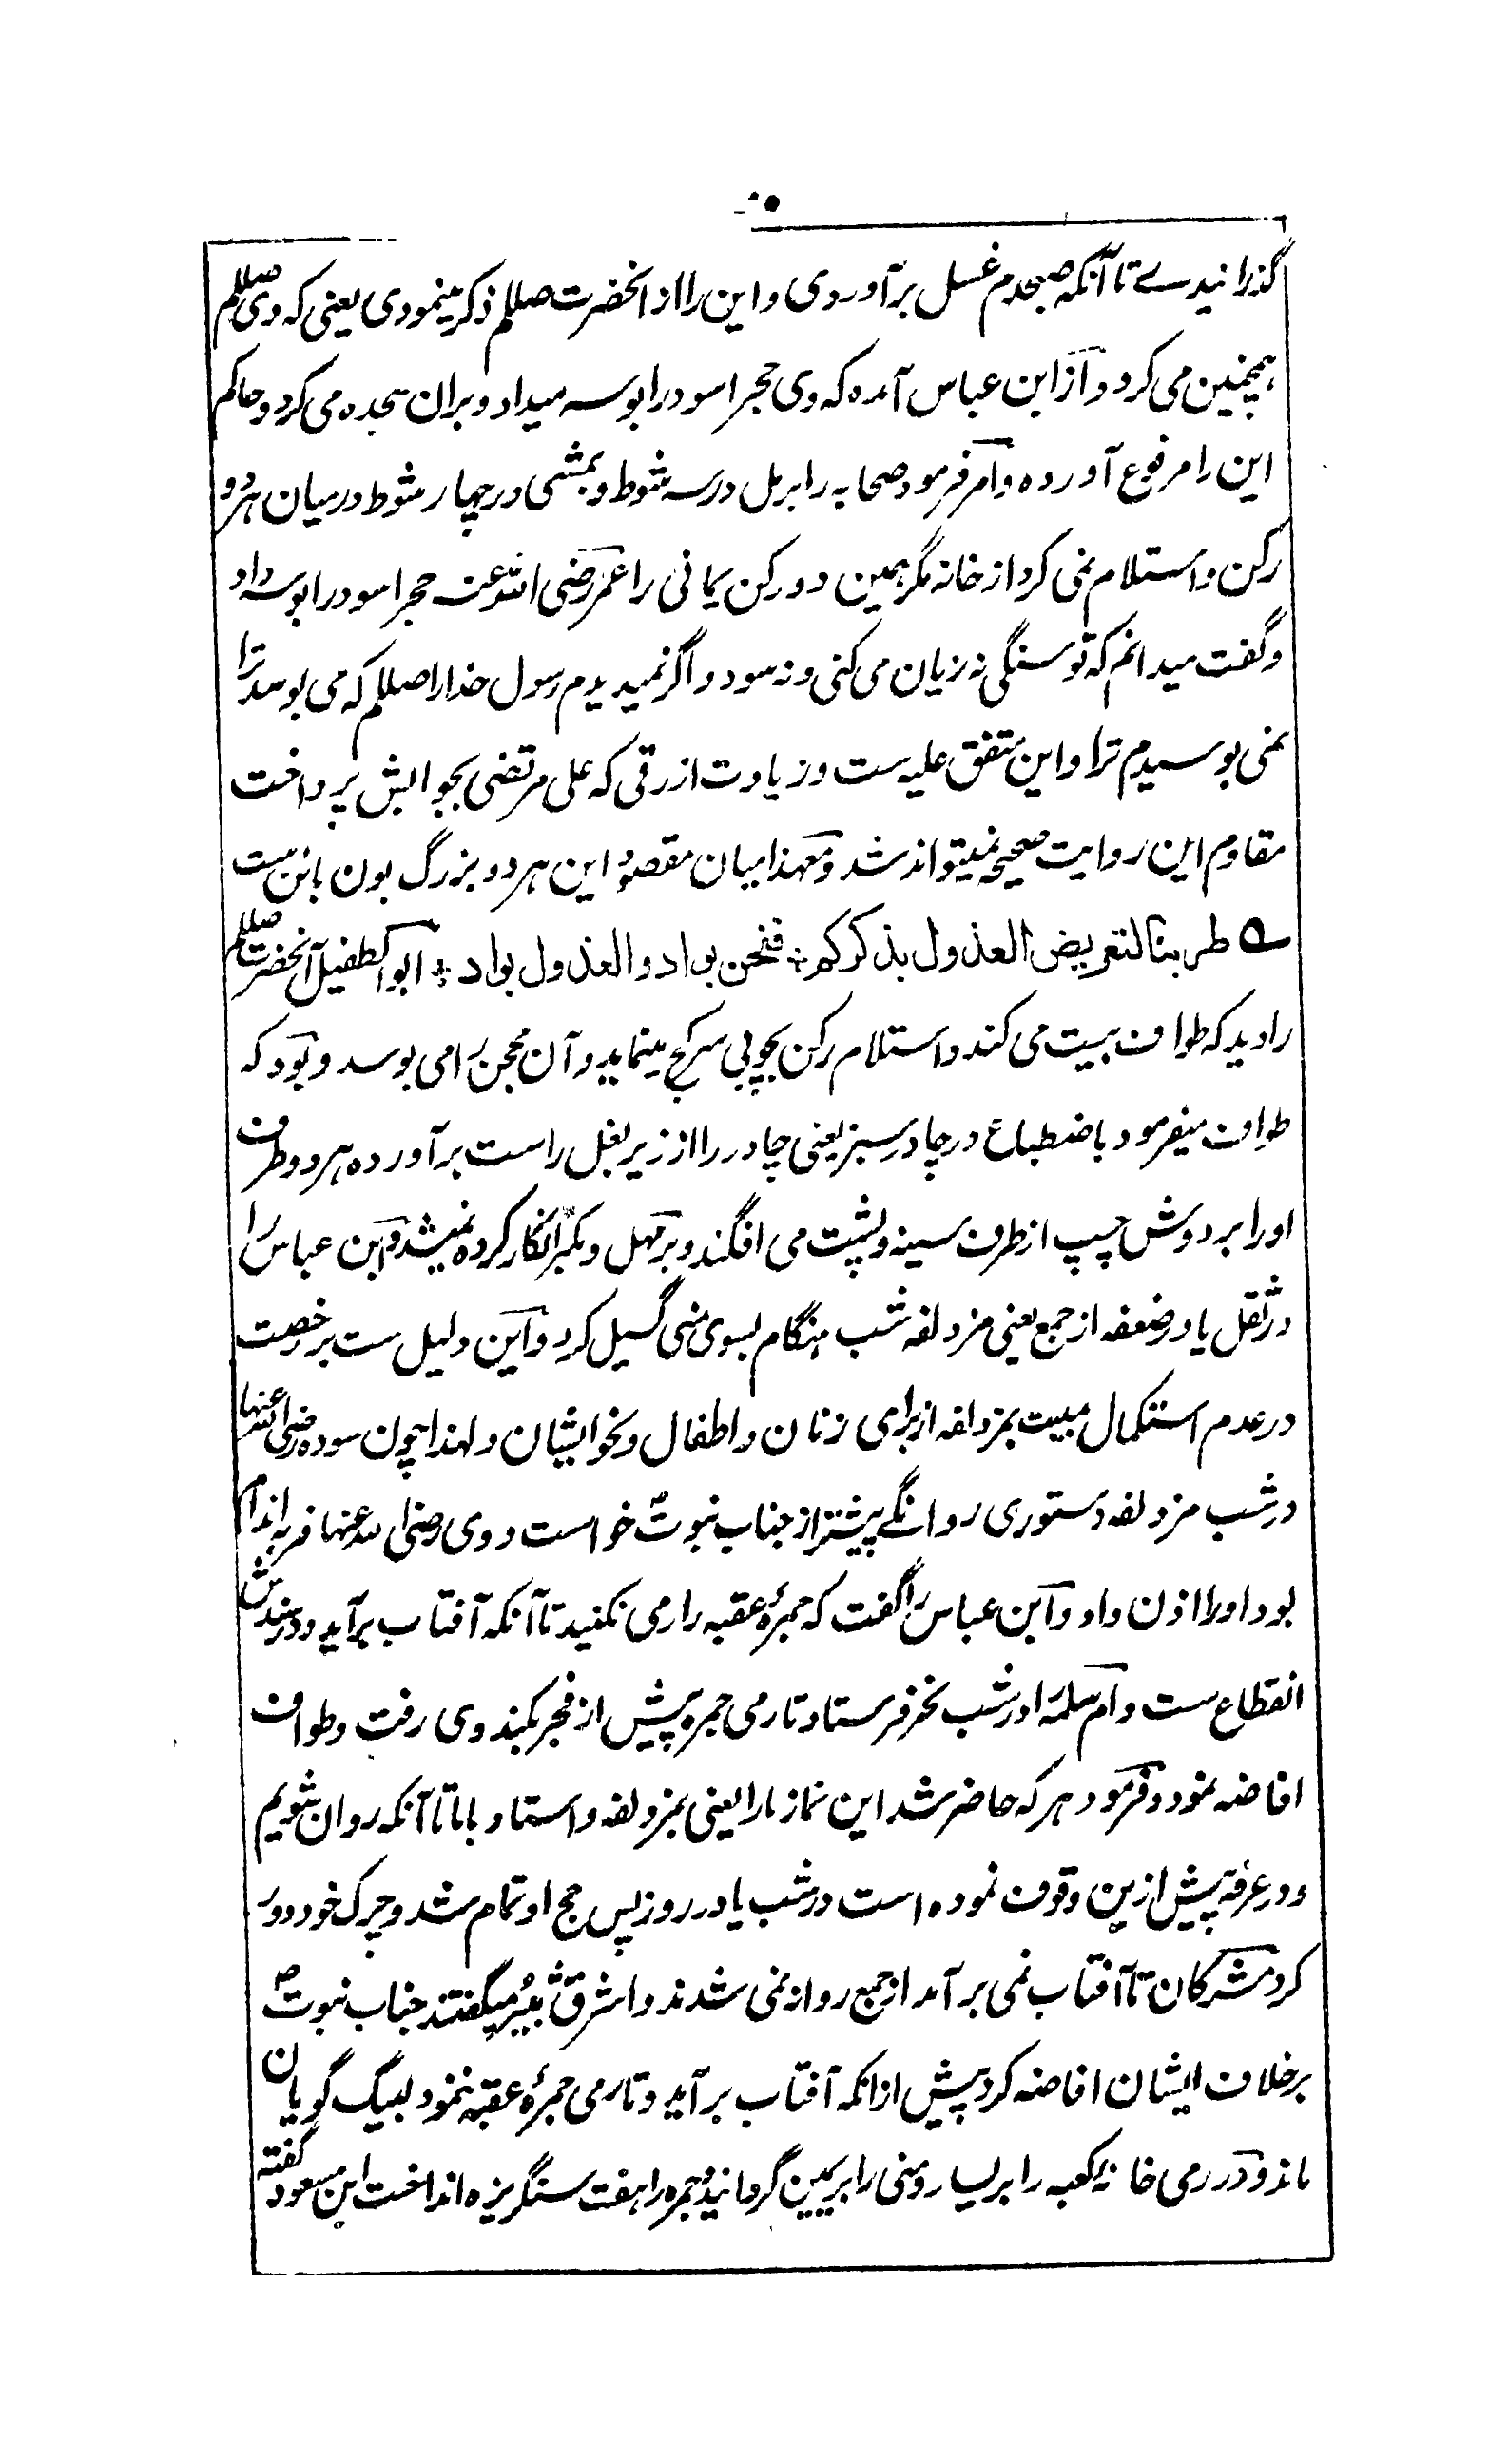 گذرانیدے تا آنکہ صبحدم غسل برآوردی و این را از آنحضرت صللم ذکر مینمودی یعنی کہ وی صللم
ہمچنین می کرد و از ابن عباس آمدہ کہ وی حجر اسود را بوسہ میداد و بران سجدہ می کرد و حاکم
این را مرفوع آوردہ و امر فرمود صحابہ را برمل در سہ شوط و بمشی در چہار شوط در میان ہر دو
رکن و استلام نمی کرد از خانہ مگر ہمین دو رکن یمانی را عمر رضی اللہ عنہ حجر اسود را بوسہ داد
و گفت میدانم کہ تو سنگی نہ زیان می کنی و نہ سود و اگر نمیدیدم رسول خدا را صللم کہ می بوسد ترا
نمی بوسیدم ترا و این متفق علیہ ست و زیادت ازرقی کہ علی مرتضی بجوابش پرداخت
مقاوم این روایت صحیحہ نمیتواند شد و معہذا بیان مقصود این ہر دو بزرگ بون بائن ست
ے طربنا لتعریض العذول بذکرکم ؞ فنحن بواد والعذول بواد ؞ ابو الطفیل آنحضرت صللم
را دید کہ طواف بیت می کند و استلام رکن بچوبی سرکج مینماید و آن محجن را می بوسد و بود کہ
طواف میفرمود باضطباع در چادر سبز یعنی چادر را از زیر بغل راست برآوردہ ہر دو طرف
او را بر دوش چپ از طرف سینہ و پشت می افگند و بر مہل و مکبر انکار کردہ نمیشد و ابن عباس را
در ثقل یا در ضعفہ از جمع یعنی مزدلفہ شب ہنگام بسوی منی گسیل کرد و این دلیل ست بر رخصت
در عدم استکمال مبیت بمزدلفہ از برای زنان و اطفال و نحو ایشان و لہذا چون سودہ رضی اللہ عنہا
در شب مزدلفہ دستوری روانگے پیشتر از جناب نبوت ص خواست و وی رضی اللہ عنہا فربہ اندام
بود او را اذن داد و ابن عباس را گفت کہ جمرۂ عقبہ را رمی نکنید تا آنکہ آفتاب برآید و در سندش
انقطاع ست و ام سلمہ را در شب نحر فرستاد تا رمی جمرہ پیش از فجر بکند وی رفت و طواف
افاضہ نمود و فرمود ہر کہ حاضر شد این نماز ما را یعنی بمزدلفہ و استاد با ما تا آنکہ روان شویم
و در عرفہ پیش ازین وقوف نمودہ است در شب یا در روز پس حج او تمام شد و چرک خود دور
کرد مشرکان تا آفتاب نمی برآمد از جمع روانہ نمی شدند و اشرق ثبیر میگفتند جناب نبوت ص
بر خلاف ایشان افاضہ کرد پیش از انکہ آفتاب برآید و تا رمی جمرۂ عقبہ ننمود لبیک گویان
ماند و در رمی خانۂ کعبہ را بر یسار و منی را بر یمین گردانید و جمرہ را ہفت سنگریزہ انداخت ابن مسعود گفتہ